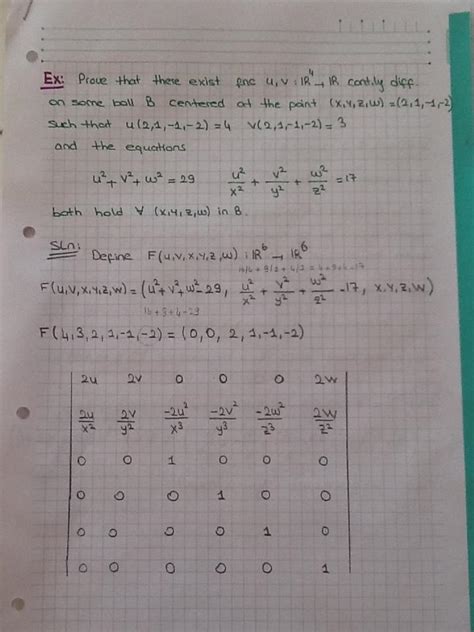 Ex: Prove that there exist fnc u,v : ℝ⁴ → ℝ contly diff.
on some ball B centered at the point (x,y,z,w)=(2,1,-1,-2)
such that u(2,1,-1,-2)=4 v(2,1,-1,-2)=3
and the equations
u²+v²+w²=29 u²/x² + v²/y² + w²/z² =17
both hold ∀ (x,y,z,w) in B.
Sln: Define F(u,v,x,y,z,w) : ℝ⁶ → ℝ⁶
F(u,v,x,y,z,w)=(u²+v²+w²-29, u²/x² + v²/y² + w²/z² -17, x,y,z,w)
F(4,3,2,1,-1,-2)=(0,0,2,1,-1,-2)
2u 2v 0 0 0 2w
2u/x² 2v/y² -2u²/x³ -2v²/y³ -2w²/z³ 2w/z²
0 0 1 0 0 0
0 0 0 1 0 0
0 0 0 0 1 0
0 0 0 0 0 1